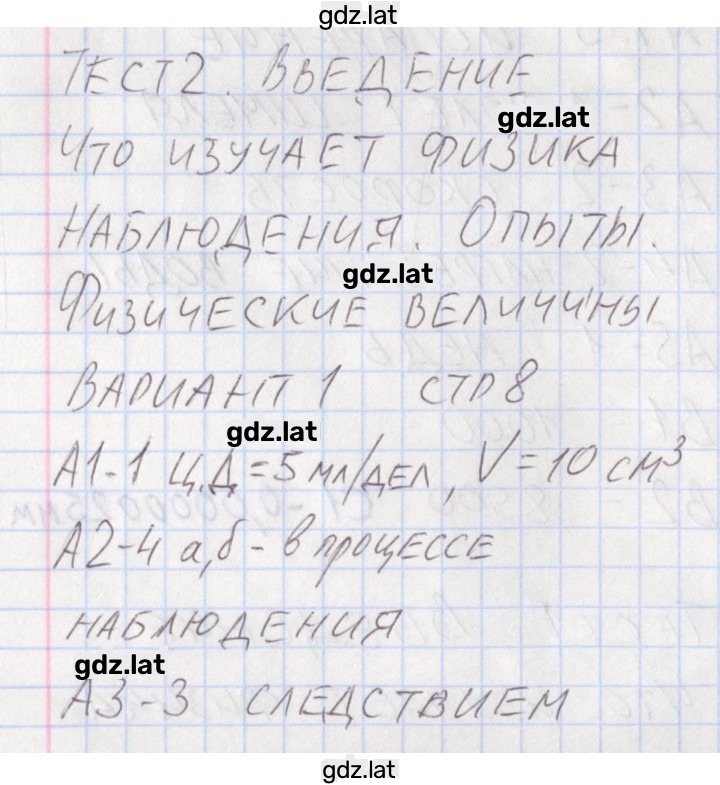 gdz.lat
Тест 2. Введение
gdz.lat
Что изучает физика
Наблюдения. Опыты.
gdz.lat
Физические величины
Вариант 1 стр 8
gdz.lat
А1-1 ц.д = 5 мл/дел, V = 10 см³
А2-4 а,б - в процессе
наблюдения
gdz.lat
А3-3 следствием
gdz.lat